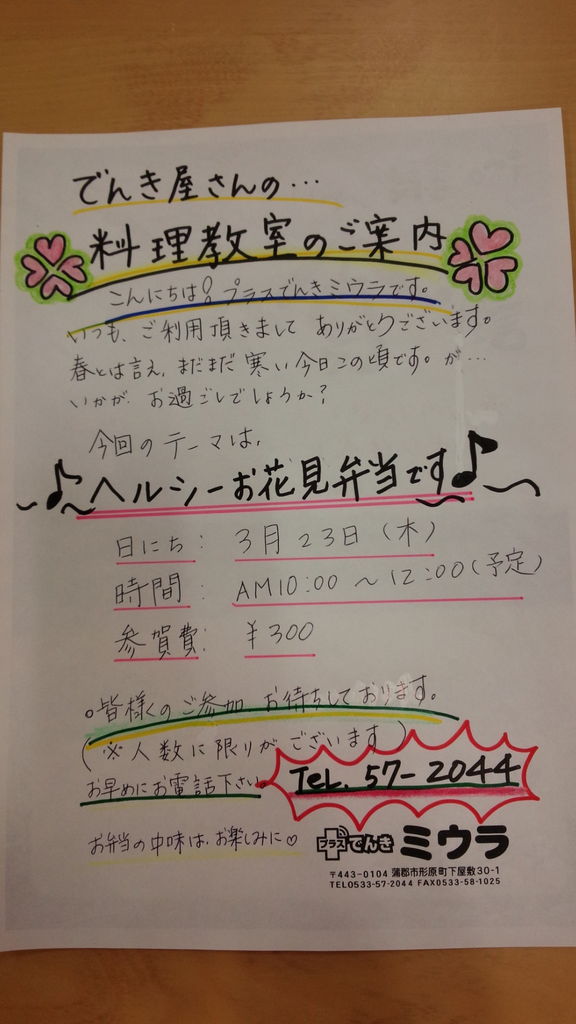 でんき屋さんの…
料理教室のご案内
こんにちは! プラスでんきミウラです。
いつも、ご利用頂きまして ありがとうございます。
春とは言え、まだまだ 寒い今日この頃です。が…
いかが お過ごしでしょうか?
今回のテーマは、
ヘルシーお花見弁当です
日にち: 3月23日(木)
時間: AM10:00～12:00(予定)
参賀費: ¥300
○皆様くのご参加 お待ちしております。
(※人数に限りがございます)
お早めにお電話下さい。
TeL. 57-2044
お弁当の中味は、お楽しみに♡
プラスでんき ミウラ
〒443-0104 蒲郡市形原町下屋敷30-1
TEL0533-57-2044 FAX0533-58-1025